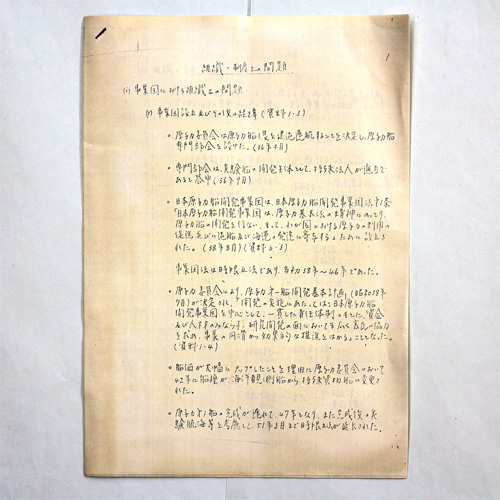 組織・制度上の問題
(1) 事業団における組織上の問題
(イ) 事業団設立及びその後の経緯 (資料1・3)
• 原子力委員会は原子力船1隻を建造運航することを決定し、原子力船
専門部会を設けた。(36年4月)
• 専門部会は、実験船の開発主体として、特殊法人が適当で
あると答申 (36年9月)
• 日本原子力船開発事業団は、日本原子力船開発事業団法第1条
「日本原子力船開発事業団は、原子力基本法の精神にのっとり、
原子力船の開発を行ない、もって、わが国における原子力の利用の
促進並びに造船及び海運の発達に寄与する」ために設立さ
れた。(38年8月)(資料4・3)
事業団法は時限立法であり、当初38年〜46年であった。
• 原子力委員会により、原子力第一船開発基本計画(昭和38年
7月)が決定され、「開発の実施にあたっては日本原子力船
開発事業団を中心として、一貫した責任体制のもとに、資金
及び人材のみならず、研究開発の面においても広く官民の協力
を求め、事業の円滑かつ効果的な推進をはかる」こととなった。
(資料1・4)
• 船価が大幅にアップしたことを理由に原子力委員会において
42年に船種が海洋観測船から特殊貨物船に変更さ
れた。
• 原子力第1船の完成が遅れて、47年となり、また完成後の実
験航海等を考慮し、51年3月まで時限立法が延長された。